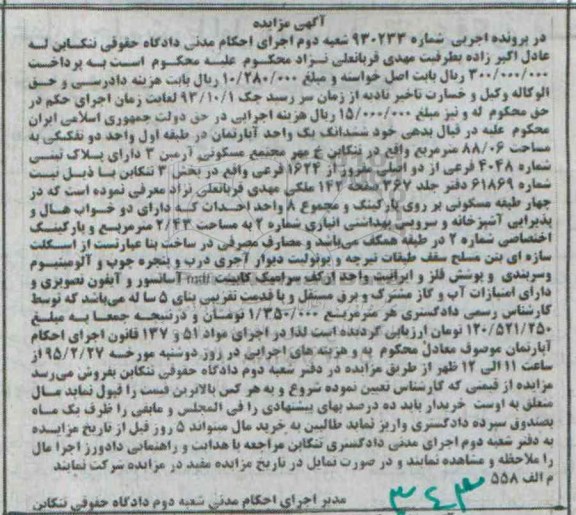 آگهی مزایده
در پرونده اجرایی شماره ۹۳۰۲۳۴ شعبه دوم اجرای احکام مدنی دادگاه حقوقی تنکابن له
عادل اکبر زاده بطرفیت مهدی قربانعلی نژاد محکوم علیه محکوم است به پرداخت
۳۰۰/۰۰۰/۰۰۰ ریال بابت اصل خواسته و مبلغ ۱۰/۲۸۰/۰۰۰ ریال بابت هزینه دادرسی و حق
الوکاله وکیل و خسارت تاخیر تادیه از زمان سر رسید چک ۹۳/۱۰/۱ لغایت زمان اجرای حکم در
حق محکوم له و نیز مبلغ ۱۵/۰۰۰/۰۰۰ ریال هزینه اجرایی در حق دولت جمهوری اسلامی ایران
محکوم علیه در قبال بدهی خود ششدانگ یک واحد آپارتمان در طبقه اول واحد دو تفکیکی به
مساحت ۸۸/۰۶ مترمربع واقع در تنکابن خ مهر مجتمع مسکونی آرمین ۳ دارای پلاک ثبتی
شماره ۴۰۴۸ فرعی از دو اصلی مفروز از ۱۶۲۴ فرعی واقع در بخش ۳ تنکابن با ذیل ثبت
شماره ۶۱۸۶۹ دفتر جلد ۳۶۷ صفحه ۱۴۲ ملکی مهدی قربانعلی نژاد معرفی نموده است که در
چهار طبقه مسکونی بر روی پارکینگ و مجموع ۸ واحد احداث که دارای دو خواب هال و
پذیرایی آشپزخانه و سرویس بهداشتی انباری شماره ۲ به مساحت ۲/۴۳ مترمربع و پارکینگ
اختصاصی شماره ۲ در طبقه همکف می‌باشد و مصارف مصرفی در ساخت بنا عبارتست از اسکلت
سازه ای بتن مسلح سقف طبقات تیرچه و یونولیت دیوار آجری درب و پنجره چوب و آلومینیوم
وسربندی و پوشش فلز و ایرانیت واحد ارکف سرامیک کابینت آسانسور و آیفون تصویری و
دارای امتیازات آب و گاز مشترک و برق مستقل و با قدمت تقریبی بنای ۵ سا له می‌باشد که توسط
کارشناس رسمی دادگستری هر مترمربع ۱/۳۵۰/۰۰۰ تومان و درنتیجه جمعا به مبلغ
۱۲۰/۵۲۱/۲۵۰ تومان ارزیابی گردیده است لذا در اجرای مواد ۵۱ و ۱۳۷ قانون اجرای احکام
آپارتمان موصوف معادل محکوم به و هزینه های اجرایی در روز دوشنبه مورخه ۹۵/۲/۲۷ از
ساعت ۱۱ الی ۱۲ ظهر از طریق مزایده در دفتر شعبه دوم دادگاه حقوقی تنکابن بفروش می‌رسد
مزایده از قیمتی که کارشناس تعیین نموده شروع و به هر کس بالاترین قیمت را قبول نماید مال
متعلق به اوست خریدار باید ده درصد بهای پیشنهادی را فی المجلس و مابقی را ظرف یک ماه
بصندوق سپرده دادگستری واریز نماید طالبین به خرید مال میتواند ۵ روز قبل از تاریخ مزایده
به دفتر شعبه دوم اجرای مدنی دادگستری تنکابن مراجعه با هدایت و راهنمایی دادورز اجرا مال
را ملاحظه و مشاهده نمایند و در صورت تمایل در تاریخ مزایده مقید در مزایده شرکت نمایند
م الف ۵۵۸
مدیر اجرای احکام مدنی شعبه دوم دادگاه حقوقی تنکابن
۳۴۳